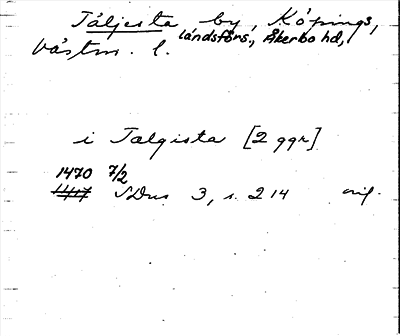 Täljesta by, Köpings,
landsförs., Åkerbo hd,
Västm. l.
i Talgista [2 ggr]
1470 7/2
1417 SDns 3, s. 214 orig.